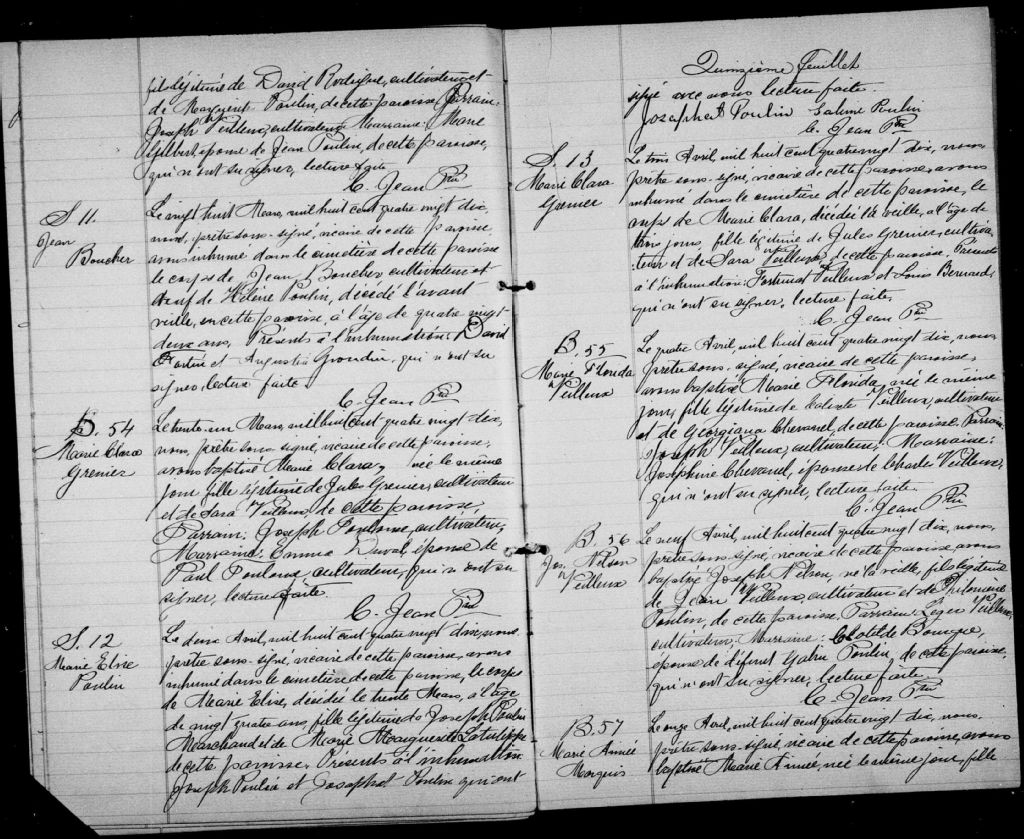 fils légitime de David Rodrigue, cultivateur et
de Marguerit Poulin, de cette paroisse, Parrain:
Joseph Veilleux, cultivateur Marraine: Marie
Gilbert, épouse de Jean Poulin, de cette paroisse,
qui n'ont su signer, lecture faite
C. Jean Ptre
S. 11.
Jean
Boucher
Le vingt huit Mars, mil huit cent quatre vingt dix,
nous, prêtre sous-signé, vicaire de cette paroisse,
avons inhumé dans le cimetière de cette paroisse
le corps de Jean Boucher cultivateur et
veuf de Hélène Poulin, décédé l'avant
veille, en cette paroisse, à l'âge de quatre vingt
deux ans, Présents à l'inhumation: David
Fortin et Augustin Grondin, qui n'ont su
signer, lecture faite
C. Jean Ptre
B. 54
Marie Clara
Grenier
Le trente-un Mars, mil huit cent quatre vingt dix,
nous, prêtre sous-signé, vicaire de cette paroisse,
avons baptisé Marie Clara, née le même
jour fille légitime de Jules Grenier, cultivateur
et de Sara Veilleux, de cette paroisse,
Parrain: Joseph Poulin, cultivateur,
Marraine: Emma Duval, épouse de
Paul Poulin, cultivateur, qui n'ont su
signer, lecture faite
C. Jean Ptre
S. 12
Marie Elise
Poulin
Le deux Avril, mil huit cent quatre vingt dix, nous
prêtre sous-signé, vicaire de cette paroisse, avons
inhumé dans le cimetière de cette paroisse, le corps
de Marie Elise, décédée le trente Mars, à l'age
de vingt quatre ans, fille légitime de Joseph Poulin
Marchand et de Marie Marguerite
de cette paroisse. Présents à l'inhumation
Joseph Poulin et Josaphat Poulin qui ont
Quinzième feuillet
signé avec nous lecture faite.
Josaphat Poulin Salime Poulin
C. Jean Ptre
S. 13
Marie Clara
Grenier
Le trois Avril, mil huit cent quatre vingt dix, nous
prêtre sous-signé, vicaire de cette paroisse, avons
inhumé dans le cimetière de cette paroisse, le
corps de Marie Clara, décédée la veille, à l'age de
trois jours, fille légitime de Jules Grenier, cultiva-
teur et de Sara Veilleux, de cette paroisse. Présents
à l'inhumation: Fortunat Veilleux et Louis Bernard
qui n'ont su signer, lecture faite.
C. Jean Ptre
B. 55
Marie Florida
Veilleux
Le quatre Avril, mil huit cent quatre vingt dix, nous
prêtre sous-signé, vicaire de cette paroisse,
avons baptisé Marie Florida, née le même
jour, fille légitime de Veilleux, cultivateur
et de Georgiana Chevanel, de cette paroisse, Parrain:
Joseph Veilleux, cultivateur. Marraine:
Joséphine Chevanel, épouse de Charles Veilleux,
qui n'ont su signer, lecture faite.
C. Jean Ptre
B. 56
Jos. Nelson
Veilleux
Le neuf Avril, mil huit cent quatre vingt dix, nous,
prêtre sous-signé, vicaire de cette paroisse, avons
baptisé Joseph Nelson, né la veille, fils légitime
de Jean Veilleux, cultivateur et de Philomène
Poulin, de cette paroisse, Parrain: Léger Veilleux,
cultivateur. Marraine: Clotilde Bourque,
épouse de défunt Poulin, de cette paroisse,
qui n'ont su signer, lecture faite
C. Jean Ptre
B. 57
Marie Année
Morquis
Le onze Avril, mil huit cent quatre vingt dix, nous
prêtre sous-signé, vicaire de cette paroisse, avons
baptisé Marie Année, née le même jour, fille